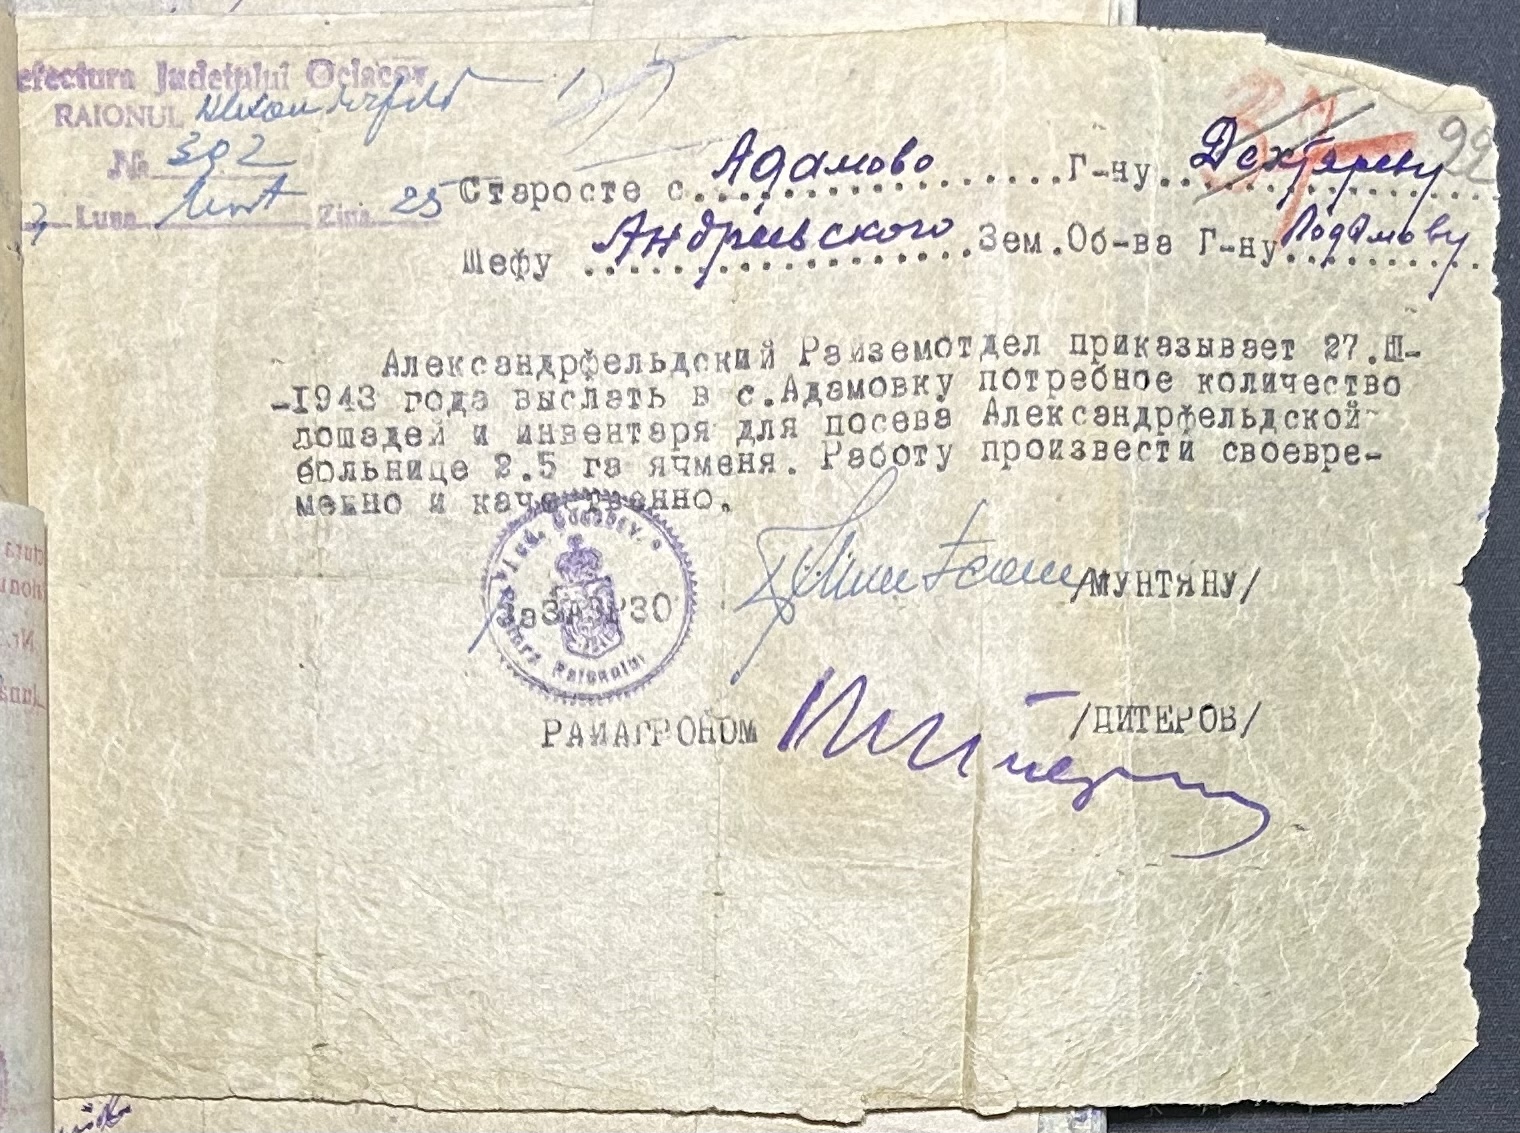 efectura Județului Oceacov
RAIONUL Alexanderfeld
№ 302
Luna Mart Ziua 25
37 92
Старосте с. Адамово Г-ну Дехтяреву
Шефу Андріевского Зем.Об-ва Г-ну Подамову
Александрфельдский Райземотдел приказывает 27.Ш-
-1943 года выслать в с.Адамовку потребное количество
лошадей и инвентаря для посева Александрфельдской
больнице 2.5 га ячменя. Работу произвести своевре-
менно и качественно.
Jud. Oceacov.
Pretura Raionului
За ЗАВРЗО /МУНТЯНУ/
РАЙАГРОНОМ /ДИТЕРОВ/